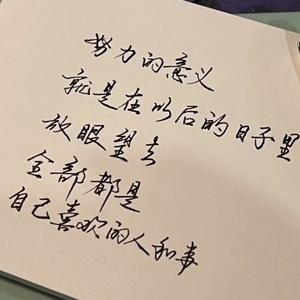 努力的意义
就是在以后的日子里
放眼望去
全部都是
自己喜欢的人和事